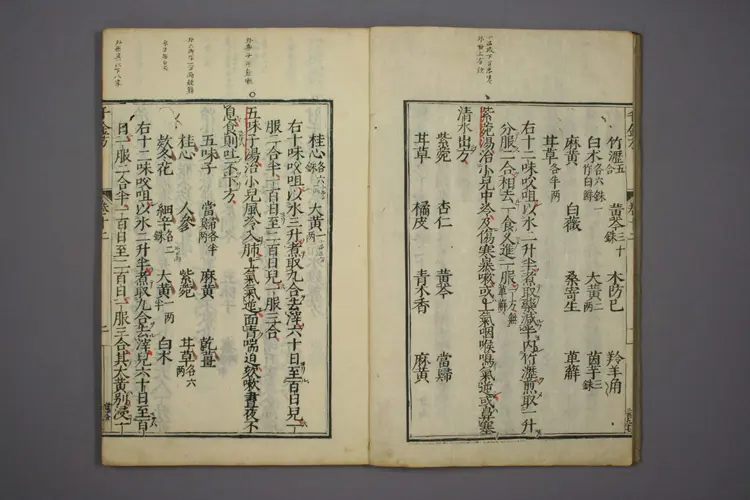 竹瀝五合 黄芩三十銖 木防已 羚羊角
白术各六銖一作白鮮 大黄二兩 茵芋三銖
麻黄 白薇 桑寄生 萆薢
甘草各半兩
右十二味㕮咀以水二升半煮取藥減半内竹瀝煎取一升
分服二合相去一食久進一服
紫菀湯治小兒中冷及傷寒暴嗽或上氣咽喉鳴氣逆或鼻塞
清水出方
紫菀 杏仁 黄芩 當歸
甘草 橘皮 青木香 麻黄
千金方 卷十二
桂心各六銖 大黄一兩
右十味㕮咀以水三升煮取九合去滓六十日至百日兒一
服二合半一百日至二百日兒一服三合
五味子湯治小兒風冷入肺上氣氣逆面青喘迫欬嗽晝夜不
息食則吐不下方
五味子 當歸各半兩 麻黄 乾薑
桂心 人參 紫菀 甘草各六銖
欵冬花 細辛各二銖 大黄一兩半 白术
右十二味㕮咀以水二升半煮取九合去滓兒六十日至百
日一服二合半一百日至二百日一服三合其大黄別浸一
千金方 卷十二 二